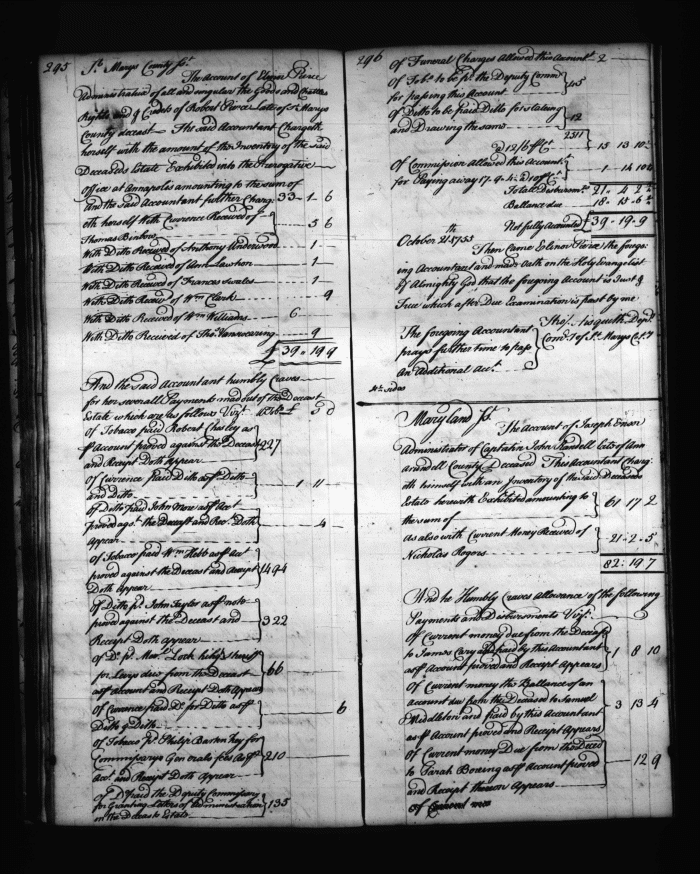 295 St. Marys County Sst.
The Account of Elinor Pierce
Administratrix of all and singular the Goods and Chattles
Rights and Credits of Robert Pierce Late of St. Marys
County deceast The said Accountant Chargeth
herself with the amount of the Inventory of the said
Deceaseds Estate Exhibited into the Prerogative
office at Annapolis amounting to the sum of
and the said Accountant further Charg 33 - 1 - 6
eth herself With Currence Received of
Thomas Binkow 5 6
With Ditto Received of Anthony Underwood 1 -
With Ditto Received of Ann Lawhon 1 -
With Ditto Received of Frances Swales 1 -
With Ditto Received of Wm Clark 9
With Ditto Received of Wm Williams 6 -
With Ditto Received of Thos. Vanreswering 9
£ 39 - 19 9
And the said Accountant humbly Craves
for her severall Payments made out of the Deceast
Estate which are as follows Vizt.
of Tobacco paid Robert Chesley as
Account proved against the Deceast 927
and Receipt Doth Appear
of Currence paid Ditto as Ditto
and Ditto 1 11
of Ditto paid John More as Acct
proved agst the Deceast and Rect. Doth 4 -
Appear
of Tobacco paid Wm Hebb as Acct
proved against the Deceast and Receipt 1494
Doth Appear
of Ditto pd. John Taylor as note
proved against the Deceast and 322
Receipt Doth appear
of Do. pd. Lock Sherriff
for Levys due from the Deceast 66
as account and Receipt Doth Appear
of Currence paid Do. for Ditto as
Ditto & Ditto 6
of Tobacco pd. Philip Key for
Commissarys Generals fees as 210
Acct and Receipt Doth Appear
of Do. paid the Deputy Commissary
for Granting Letters of Administration 135
on the Deceasts Estate
296 of Funeral Charges Allowed this Accountt 2
of Tobo. to be pd. the Deputy Comm
for passing this Account 45
of Ditto to be paid Ditto for stating
and Drawing the same 12
2511
@ 12/6 pCt 15 13 10
Of Commission Allowed this Account
for Paying away 17-9-4 @ 10 pCt 1 - 14 10
Totall Disbursmt 21 - 4 2
Ballance due 18 - 15 - 6
Not fully Accounted 39 - 19 - 9
October 21th 1755
Then Came Elinor Pierce the forego
ing Accountant and made Oath on the Holy Evangelist
of Almighty God that the foregoing Account is Just &
True which after Due Examination is past by me
Thos. Aisquith Depty
Comry of St. Marys County
The foregoing Accountant
prays further time to pass
An Additional Acct.
4th sides
Maryland Sst.
The Account of Joseph
Administrator of Captain John Randell Late of Ann
Arundell County Deceased This Accountant Charg
eth himself with an Inventory of the said Deceaseds
Estate herewith Exhibited amounting to
the sum of 61 17 2
As also with Current Money Received of
Nicholas Rogers 21 - 2 - 5
82: 19 7
And he Humbly Craves Allowance of the following
Payments and Disbursments Vizt.
Of Current money due from the Deceast
to James Cary and paid by this Accountant 1 8 10
as Account proved and Receipt Appears
Of Current money the Ballance of an
account due from the Deceased to Samuel
Middleton and paid by this Accountant 3 13 4
as Account proved and Receipt Appears
Of Current money Due from the Deceasd
to Sarah Boering as Account proved 12 9
and Receipt thereon Appears
Of Current mo